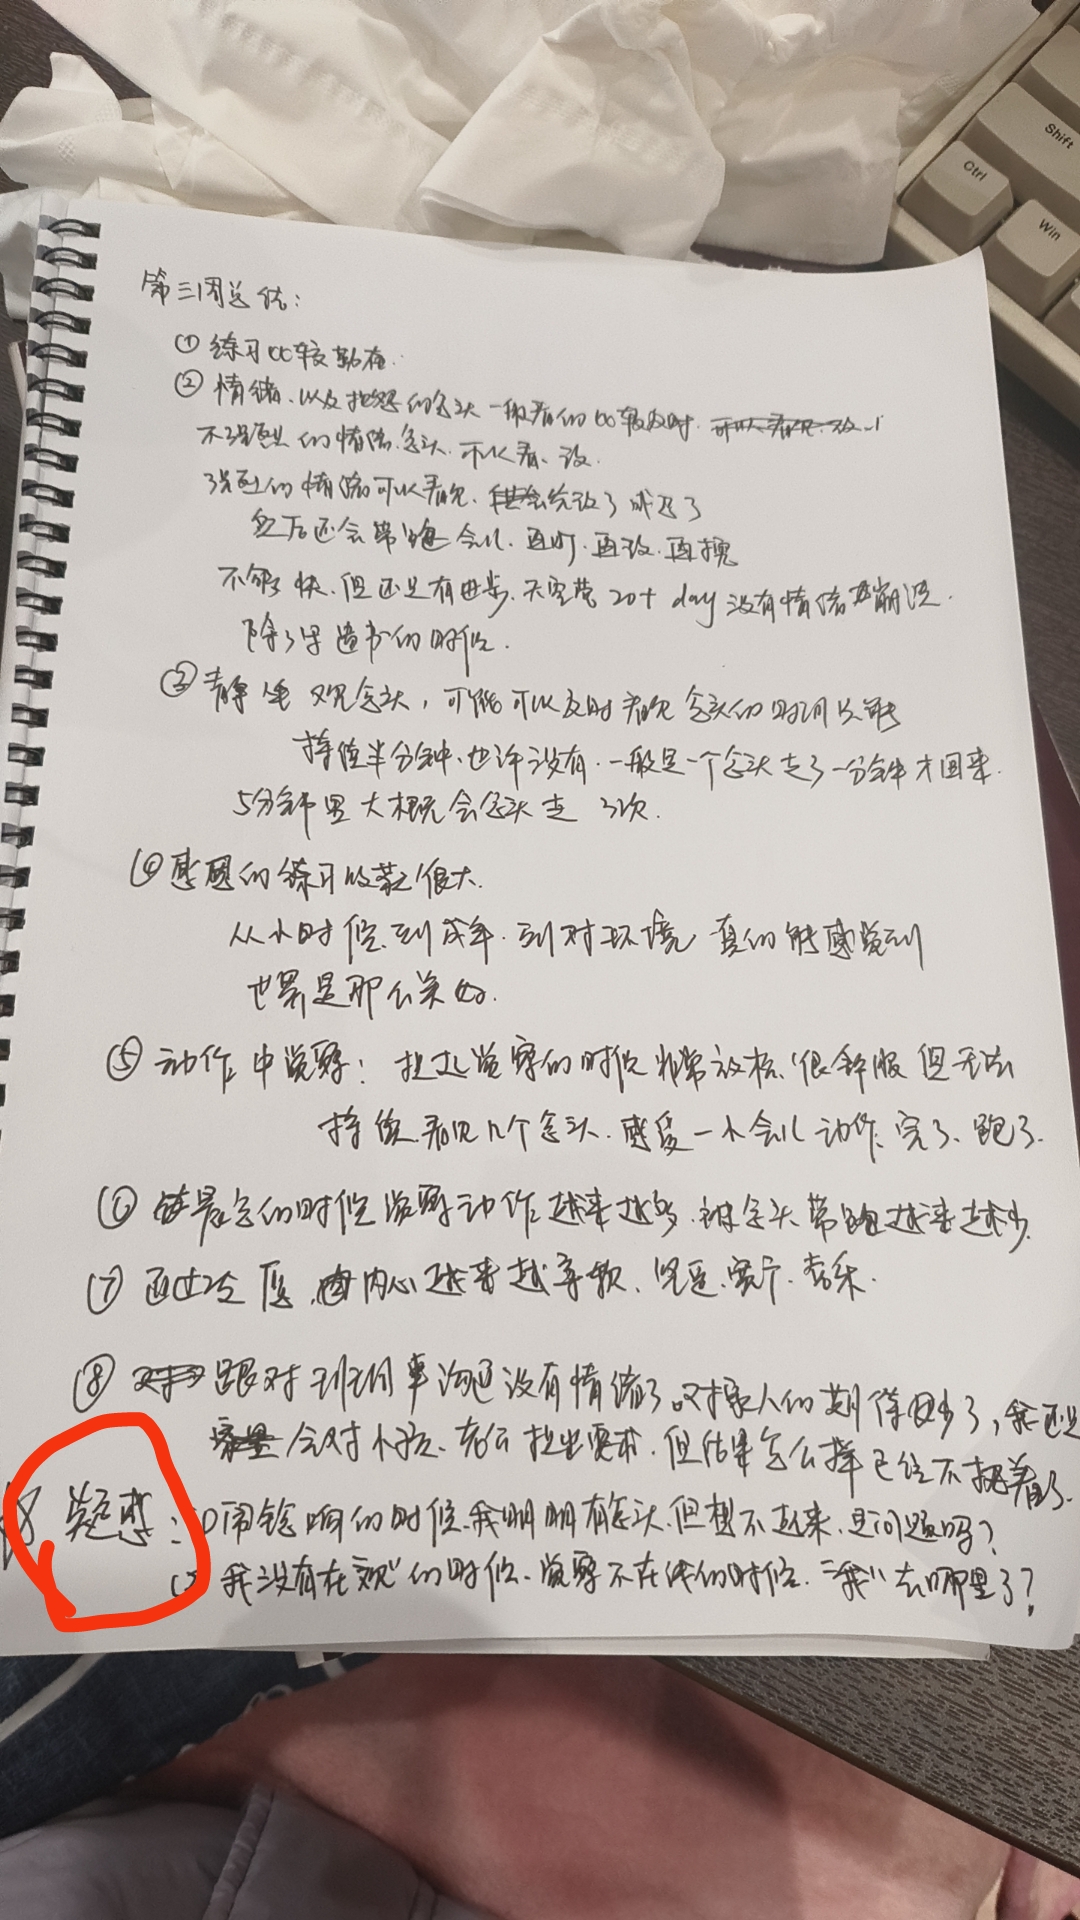 Shift
Ctrl
Win
第三周总结：
① 练习比较勤奋.
② 情绪、以及抱怨的念头一般看的比较及时.
不强烈的情绪念头.可以看、改.
强烈的情绪可以看见、改了或忍了
然后还会带跑会儿.再盯.再改.再拽
不够快.但还是有进步.大宝营20+ day没有情绪崩溃.
除了 遗书的时候.
③ 静坐观念头，可能可以及时看见念头的时间只能
持续半分钟、也许没有.一般是一个念头走了一分钟才回来.
5分钟里大概会念头走3次.
④ 感恩的练习收获很大.
从小时候.到成年.到对环境 真的能感觉到
世界是那么美好.
⑤ 动作中觉察：提起觉察的时候非常放松、很舒服 但无法
持续.看见几个念头、感受一小会儿动作、完了、跑了.
⑥ 早晨的时候觉察动作越来越多.被念头带跑越来越少.
⑦ 内心越来越柔软、宽广.
⑧ 跟对班同事沟通没有情绪了.对家人的期待变少了，我还是
会对小孩、老公提出要求.但结果怎么样已经不执着了.
疑惑：① 闹铃响的时候.我明明有念头.但想不起来.是问题吗？
② 我没有在“观”的时候、觉察不在线的时候.“我”去哪里了？